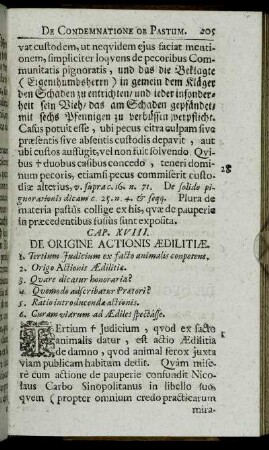 DE CONDEMNATIONE OB PASTUM. 205
vat custodem, ut neqvidem ejus faciat mentionem, simpliciter loqvens de pecoribus Communitatis pignoratis, und das die Beklagte
(Eigenthumbsherrn) in gemein dem Kläger
den Schaden zu entrichten/ und ieder insonderheit sein Vieh/ das am Schaden gepfändet/
mit sechs Pfennigen zu verbüssen verpflicht.
Casus potuit esse, ubi pecus citra culpam sive
præsentis sive absentis custodis depavit, aut
ubi custos aufugit, vel non fuit solvendo. Qvibus † duobus casibus concedo, teneri dominum pecoris, etiamsi pecus commiserit custodiæ alterius, v. supra c. 16. n. 71. De solido pignorationis dicam c. 25. n. 4. & seqq. Plura de
materia pastûs collige ex his, qvæ de pauperie
in præcedentibus fusius sunt exposita.
28
CAP. XVIII.
DE ORIGINE ACTIONIS ÆDILITIÆ.
1. Tertium Judicium ex facto animalis competens.
2. Origo Actionis Ædilitiæ.
3. Qvare dicatur honoraria?
4. Qvomodo adscribatur Prætori?
5. Ratio introducendæ actionis.
6. Curam viarum ad Ædiles spectasse.
TErtium † Judicium, qvod ex facto
animalis datur, est actio Ædilitia
de damno, qvod animal ferox juxta
viam publicam habitum dedit. Qvàm miserè cum actione de pauperie confundit Nicolaus Carbo Sinopolitanus in libello suo,
qvem (propter omnium credo practicarum
mira-